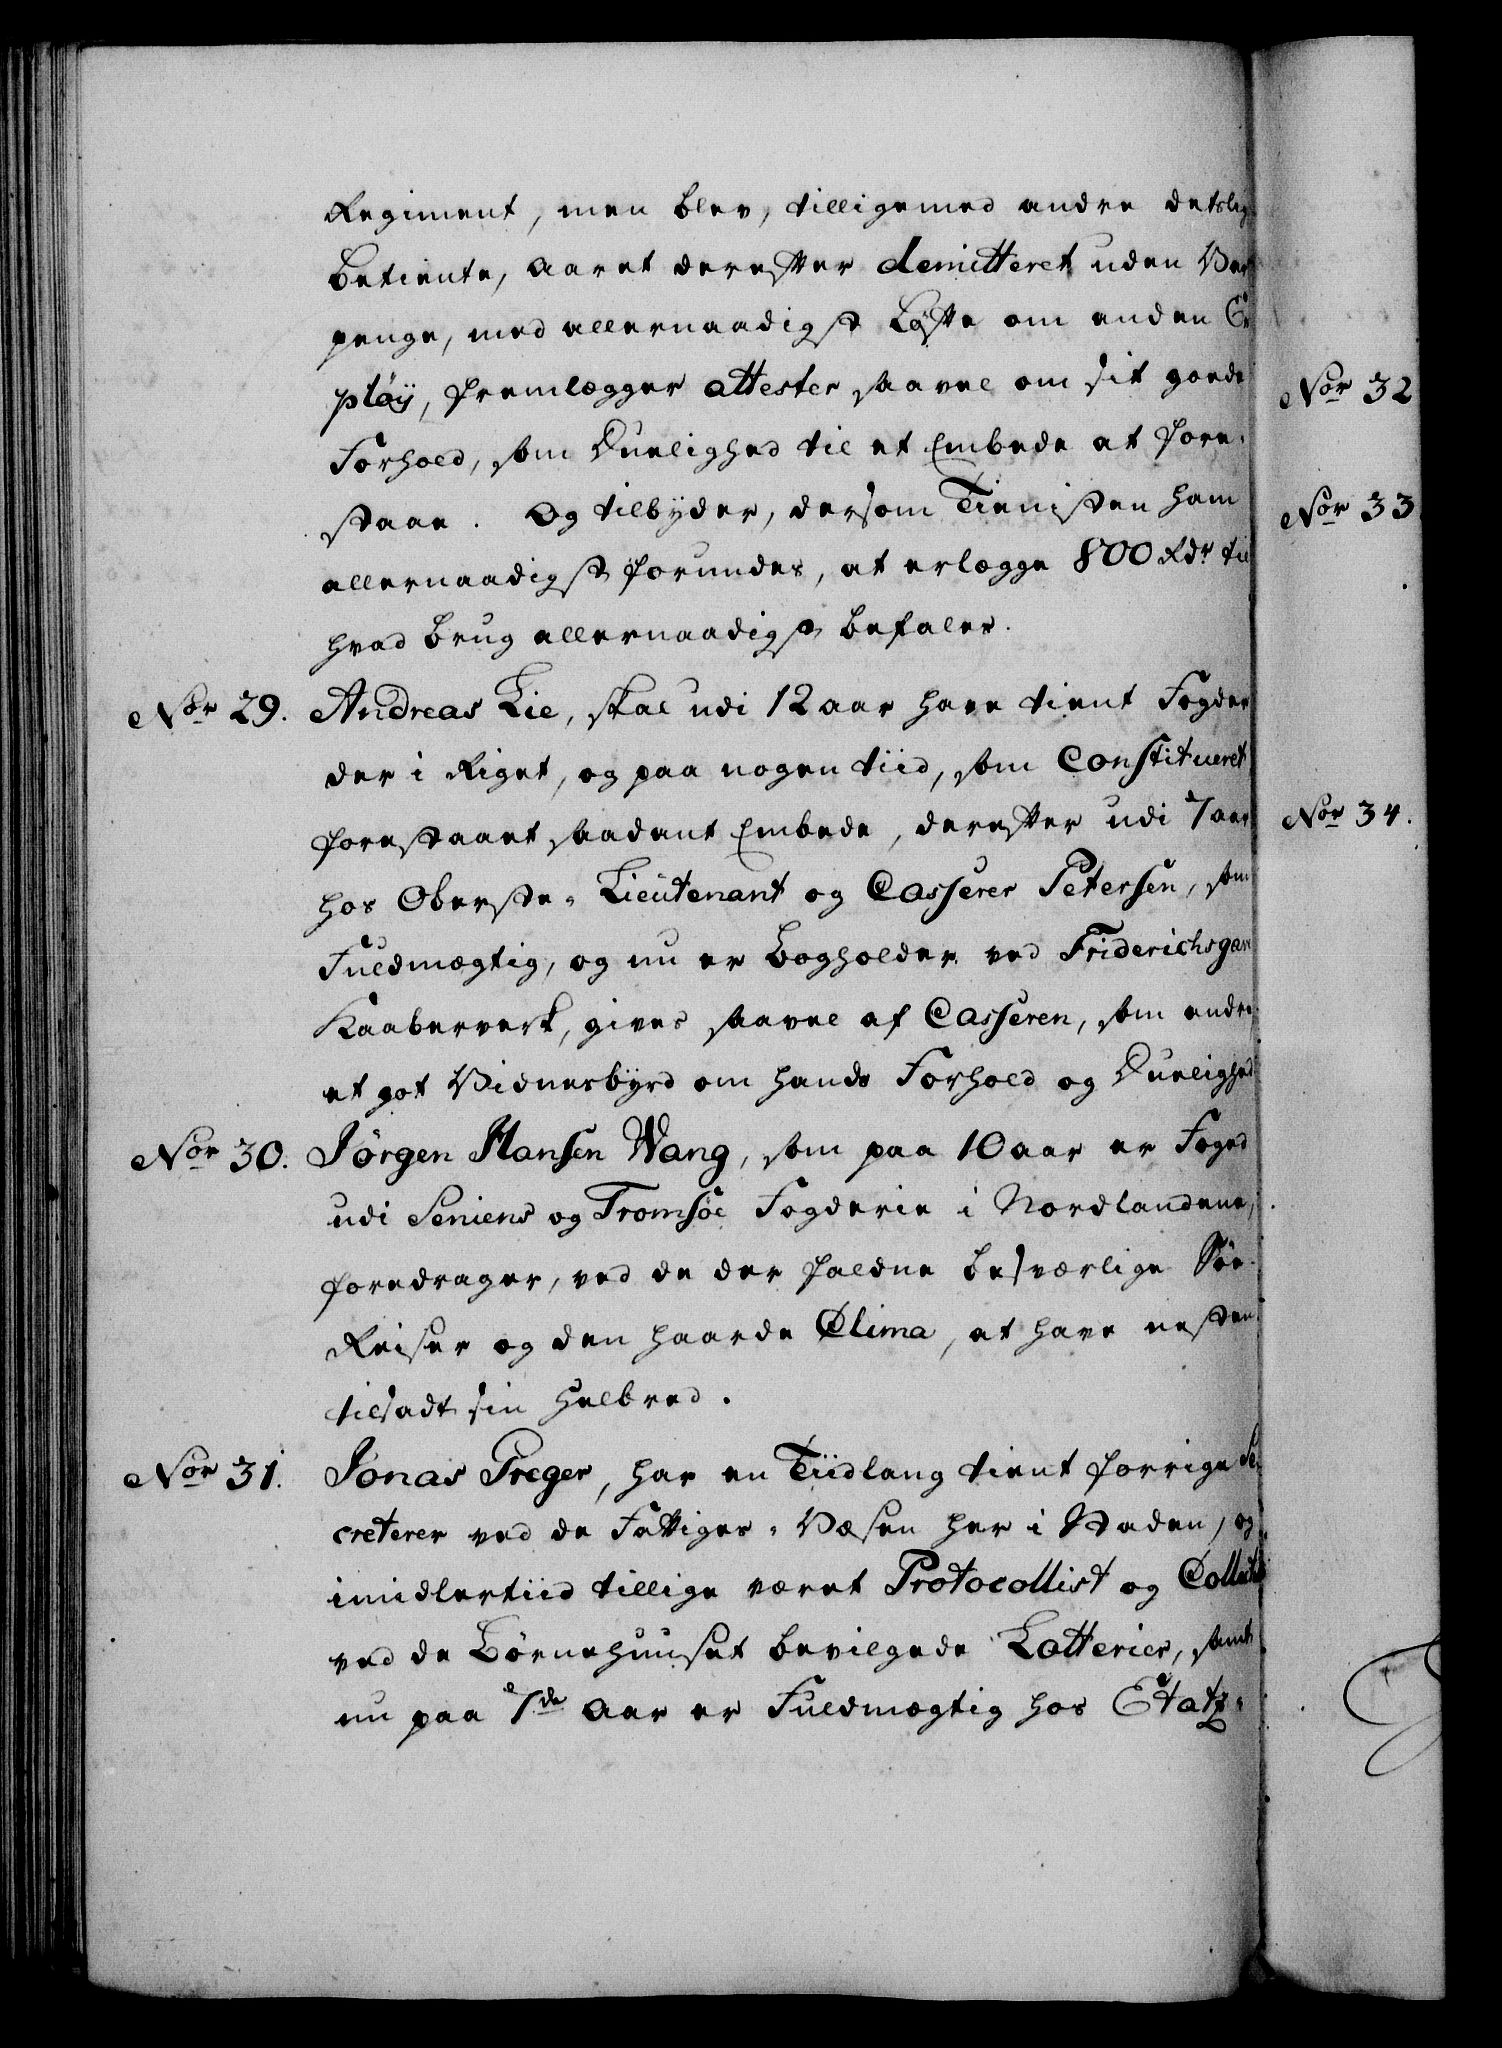 Regiment, men blev, tilligemed andre deslig
betiente, aaret derefter demitteret uden Var
penge, med allernaadigst Løfte om anden Em
pløy, fremlægger attester saavel om sit goede
Forhold, som Duelighed til et Embede at fore-
staae. Og tilbyder, dersom Tienisten ham
allernaadigst forundes, at erlægge 800 Rdr til
hvad brug allernaadigst befales.
Nor 29. Andreas Lie, skal udi 12 aar have tient Fogder
der i Riget, og paa nogen tiid, som Constitueret
forestaaet saadant Embede, derefter udi 7 aar
hos Oberste-Lieutenant og Casserer Petersen, som
Fuldmægtig, og nu er bogholder ved Friderichsgav
Kaaberverk, gives saavel af Casseren, som andre
et got Vidnesbyrd om hands Forhold og Duelighed
Nor 30. Jörgen Hansen Wang, som paa 10 aar er Foged
udi Seniens og Tromsöe Fogderie i Nordlandene,
foredrager, ved de der faldne besværlige Söe-
Reiser og den haarde Clima, at have nesten
tilsadt sin Helbred.
Nor 31. Jonas Preger, har en Tiidlang tient forrige Se-
creterer ved de Fattiges-Væsen her i Staden, og
imidlertiid tillige været Protocollist og
ved de Börnehuuset bevilgede Lotterier, samt
nu paa 7de Aar er Fuldmægtig hos Etatz-
Nor 32
Nor 33
Nor 34.